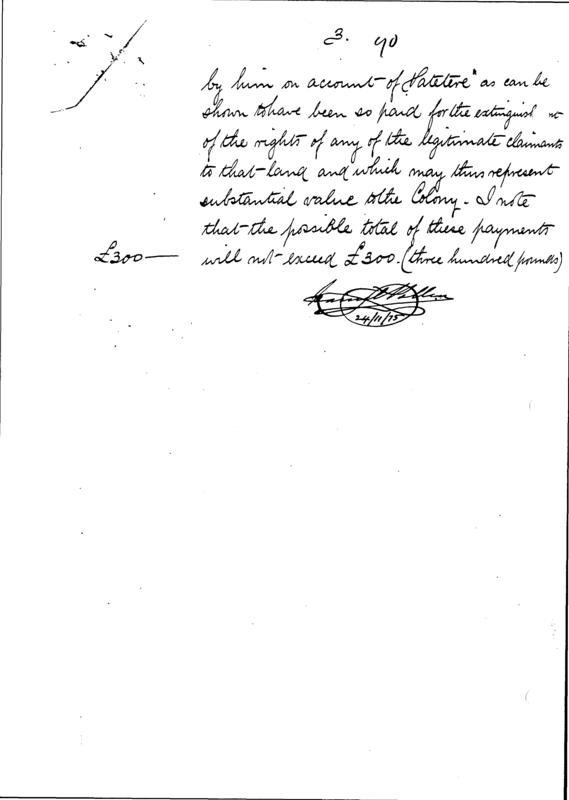 3. 90
by him on account of Patetere" as can be
shown to have been so paid for the
of the rights of any of the legitimate claimants
to that land and which may thus represent
substantial value to the Colony. I note
that the possible total of these payments
£300— will not exceed £300. (three hundred pounds)
24/11/75